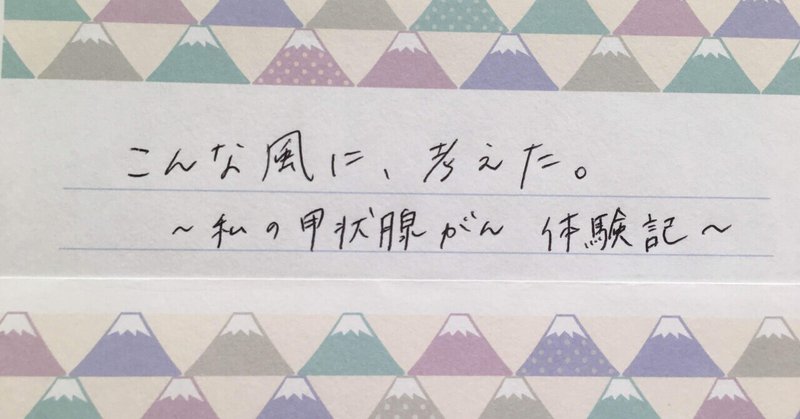 こんな風に、考えた。
~私の甲状腺がん 体験記~